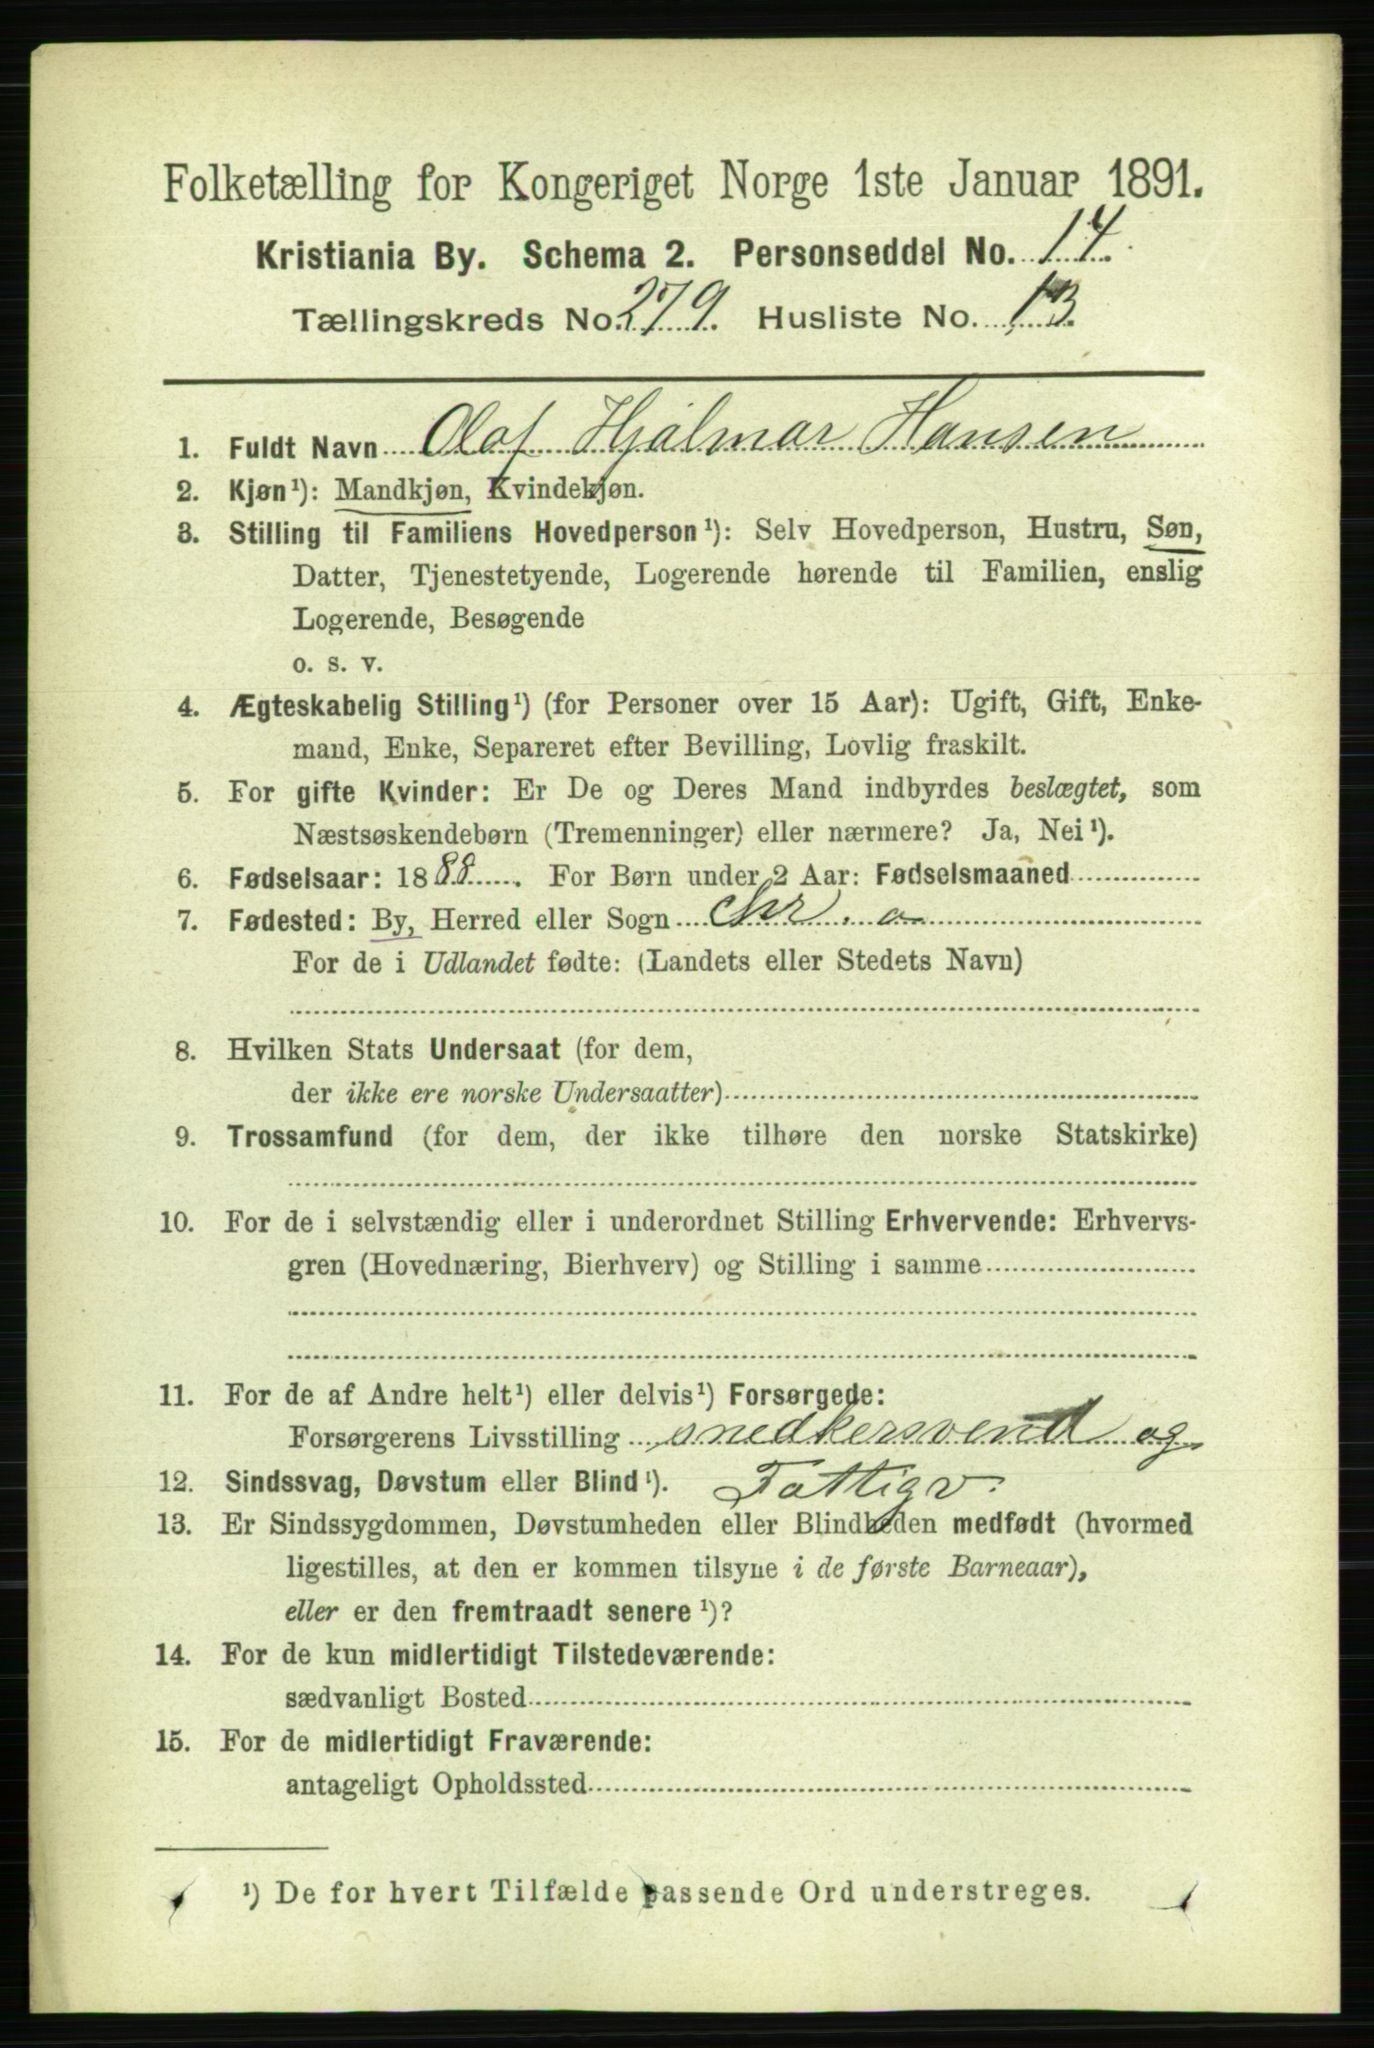 Folketælling for Kongeriget Norge 1ste Januar 1891.
Kristiania By. Schema 2. Personseddel No. 14.
Tællingskreds No. 279. Husliste No. 13.
1. Fuldt Navn Olaf Hjalmar Hansen
2. Kjøn¹): Mandkjøn, Kvindekjøn.
3. Stilling til Familiens Hovedperson¹): Selv Hovedperson, Hustru, Søn,
Datter, Tjenestetyende, Logerende hørende til Familien, enslig
Logerende, Besøgende
o. s. v.
4. Ægteskabelig Stilling¹) (for Personer over 15 Aar): Ugift, Gift, Enke-
mand, Enke, Separeret efter Bevilling, Lovlig fraskilt.
5. For gifte Kvinder: Er De og Deres Mand indbyrdes beslægtet, som
Næstsøskendebørn (Tremenninger) eller nærmere? Ja, Nei¹).
6. Fødselsaar: 1888. For Børn under 2 Aar: Fødselsmaaned
7. Fødested: By, Herred eller Sogn Chr. a
For de i Udlandet fødte: (Landets eller Stedets Navn)
8. Hvilken Stats Undersaat (for dem,
der ikke ere norske Undersaatter)
9. Trossamfund (for dem, der ikke tilhøre den norske Statskirke)
10. For de i selvstændig eller i underordnet Stilling Erhvervende: Erhvervs-
gren (Hovednæring, Bierhverv) og Stilling i samme
11. For de af Andre helt¹) eller delvis¹) Forsørgede:
Forsørgerens Livsstilling snedkersvend og
12. Sindssvag, Døvstum eller Blind¹). Fattigv.
13. Er Sindssygdommen, Døvstumheden eller Blindheden medfødt (hvormed
ligestilles, at den er kommen tilsyne i de første Barneaar),
eller er den fremtraadt senere¹)?
14. For de kun midlertidigt Tilstedeværende:
sædvanligt Bosted
15. For de midlertidigt Fraværende:
antageligt Opholdssted
¹) De for hvert Tilfælde passende Ord understreges.